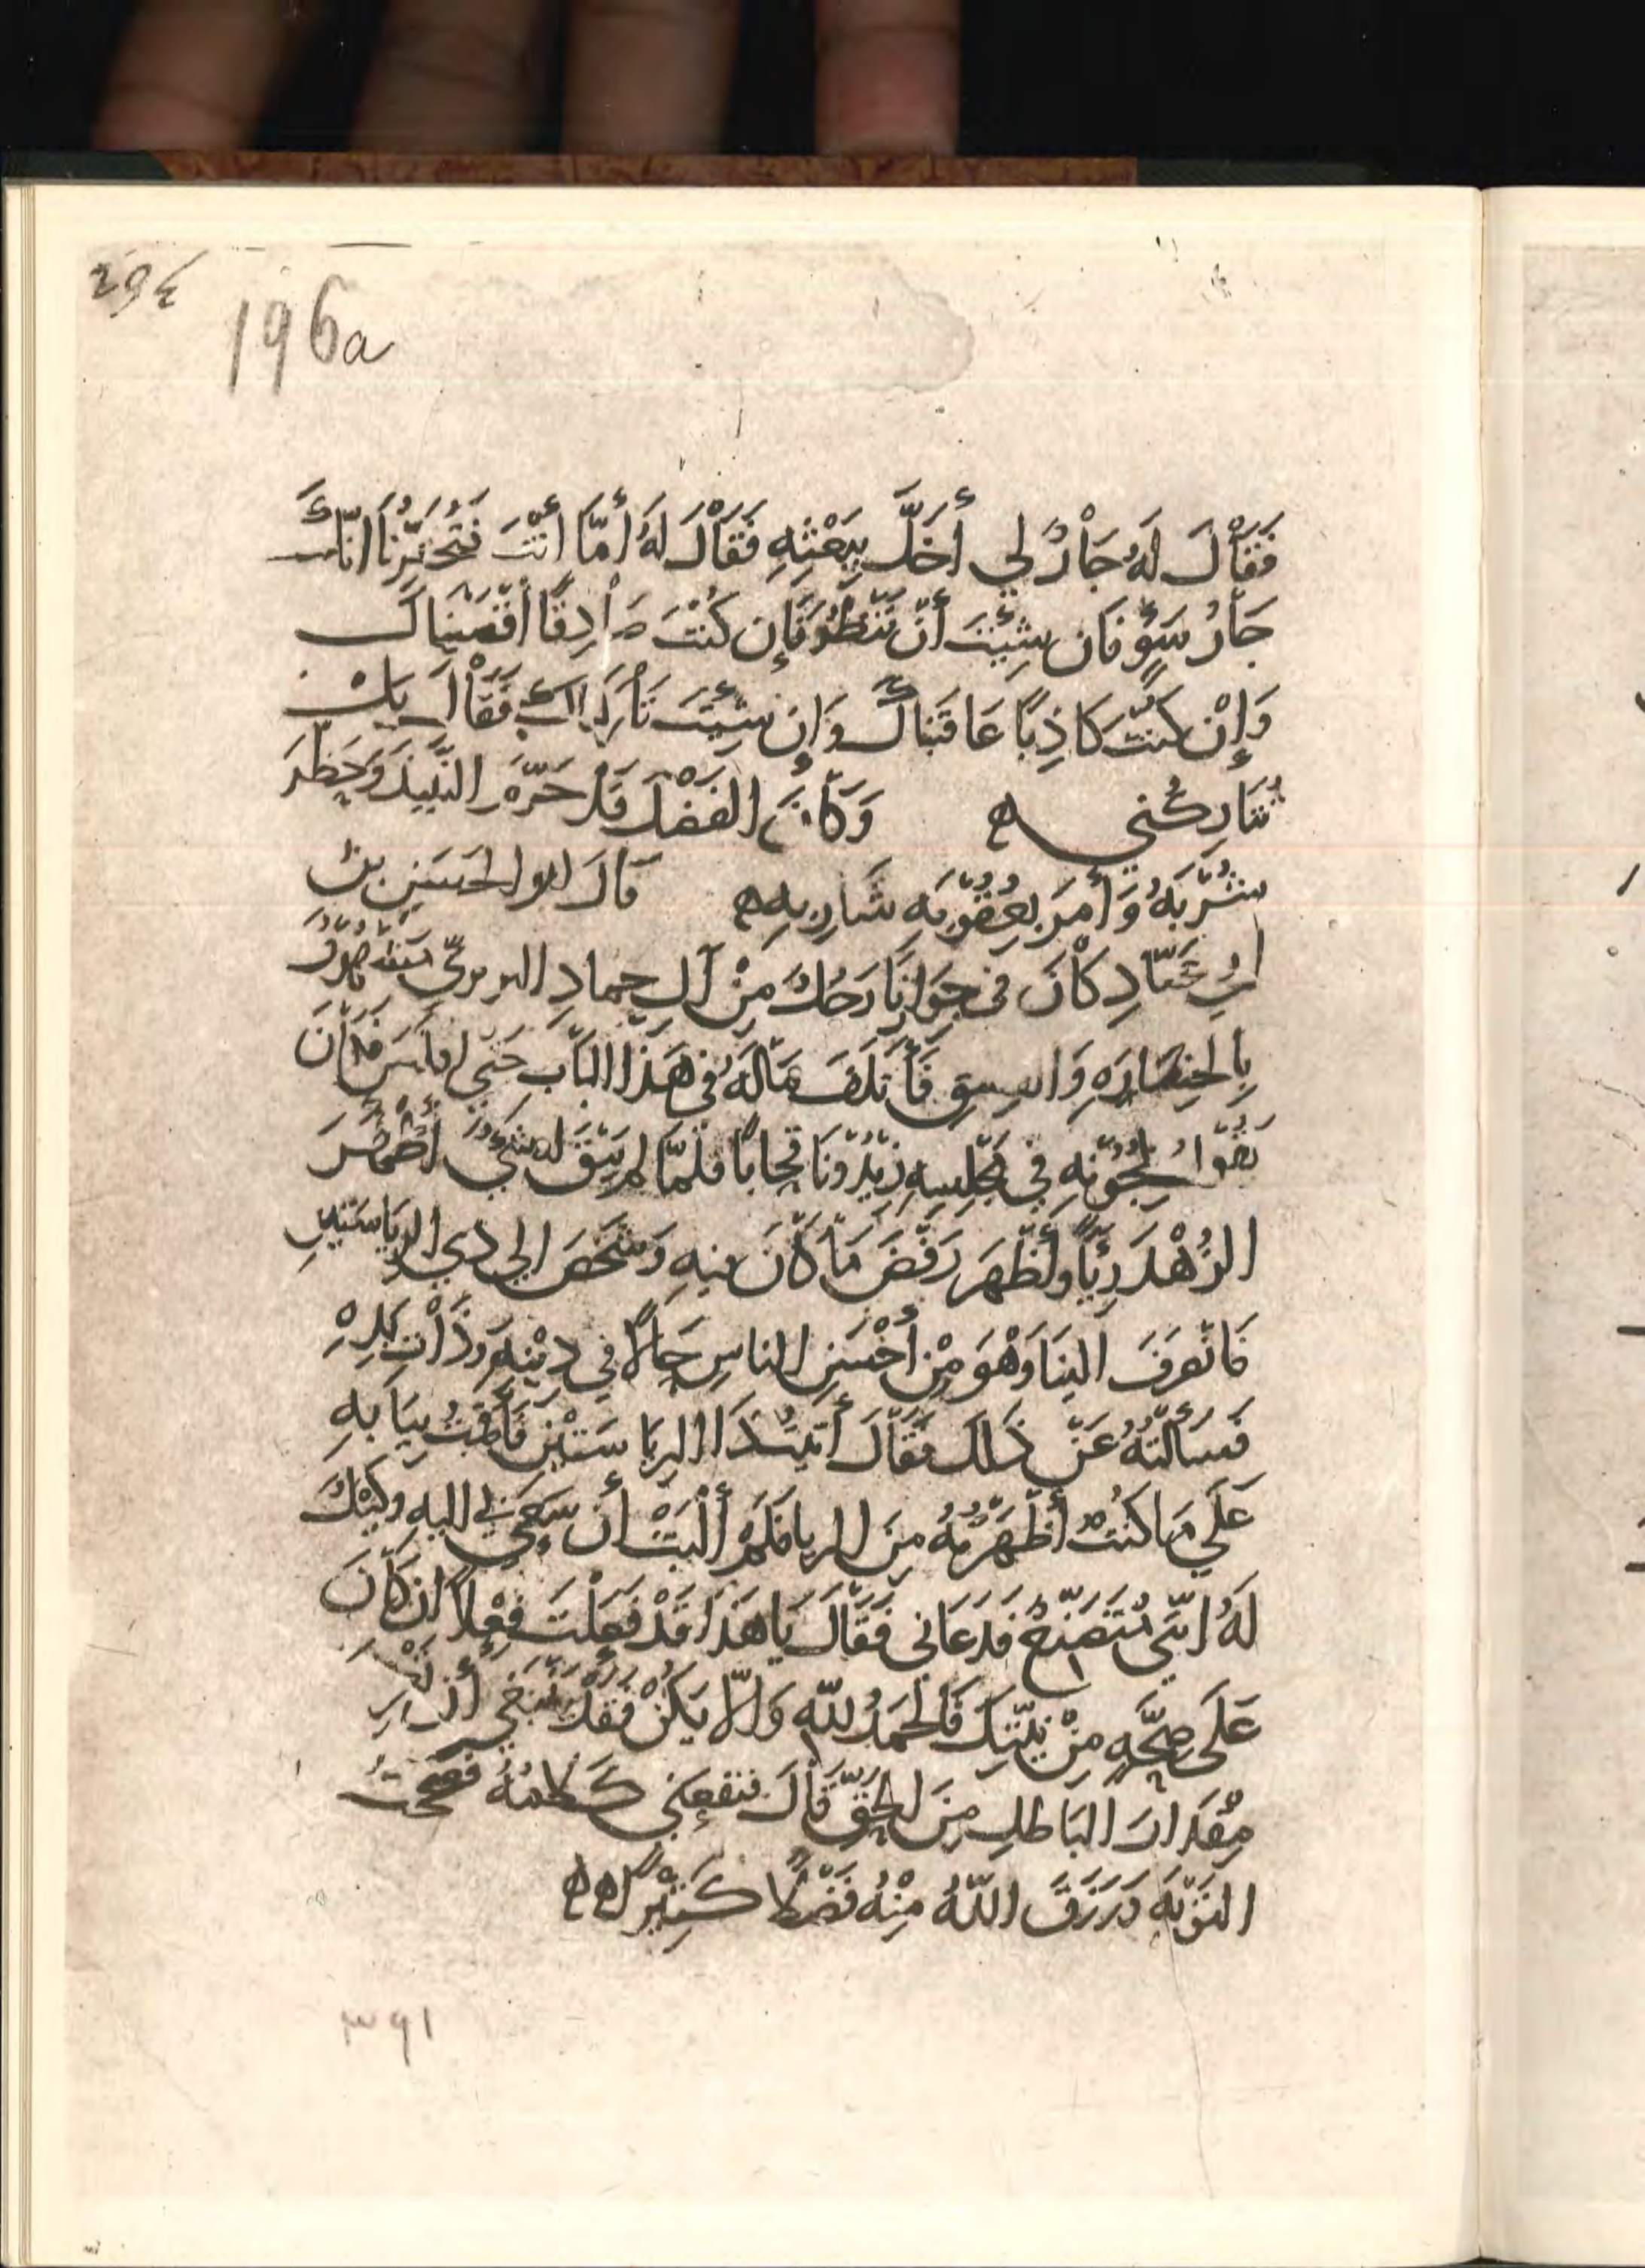 294
196a
فَقَالَ لَهُ جَارٌ لِي أَخَلَّ بِبَعْثِهِ فَقَالَ لَهُ أَمَّا أَنْتَ فَتُخْبِرُنَا انَّكَ
جَارُ سَوْءٍ فَان شِئْتَ أَنْ نَنْظُرَ فَإِن كُنْتَ صَادِقًا أَقْصَيْنَاكَ
وَإِنْ كُنْتَ كَاذِبًا عَاقَبْنَاكَ وَإِن شِئْتَ تَارَكْنَاكَ فَقَالَ بَلْ
تُتَارِكُنِي ه وَكَانَ الفَضْلُ قَدْ حَرَّمَ النَّبِيذَ وَحَظَرَ
شُرْبَهُ وَأَمَرَ بِعُقُوبَهِ شَارِبِهِ ه قَالَ ابو الحَسَنِ بن
ابي عَبَّادٍ كَانَ في جِوَارِنَا رَجُلٌ مِنْ آلِ حمادٍ البربريّ
فِي هَذَا البَابِ حَتَّى افلَسَ فَكَانَ
فِي مَجْلِسِهِ فَلَمَّا لم يَبْقَ له شَيْءٌ أَضْمَرَ
الزُهْدَ رِيًّا وأَظْهَرَ رَفْضَ مَا كَانَ فيهِ وَشَخَصَ الي ذي الرِيَاسَتَيْنِ
فَانْصَرَفَ الينَا وَهْوَ مِنْ أَحْسَنِ الناسِ حَالًا فِي دِيْنِهِ وَذَاتِ يَدِهِ
فَسَأَلْتُهُ عَنْ ذَلكَ فَقَالَ أَتَيْتُ ذَا الرِيَاسَتَيْنِ فَأَقَمْتُ بِبَابِهِ
عَلَي مَا كُنْتُ أَظْهَرْتُهُ مِنَ الريا فَلَمْ أَلْبَثْ أَن سَعَي بِي اليه وَقِيْلَ
لَهُ انَّهُ مُتَصَنِّعٌ فَدَعَاني فَقَالَ يَا هَذَا قَدْ فَعَلْتَ فِعْلاً ان كَانَ
عَلَى صِحَّهٍ مِنْ نِيَّتِكَ فَالحَمْدُ للهِ وَالّا يَكُنْ فَقَدْ يَنْبَغِي أَنْ
مِقْدَارَ البَاطلِ مِنَ الحَقِّ قَالَ فَنَفَعَني كَلَامُهُ فَصَحَّتُ
التَوْبَهَ وَرَزَقَ اللَّهُ مِنْهُ فَضْلًا كَثِيْرًا ه ه